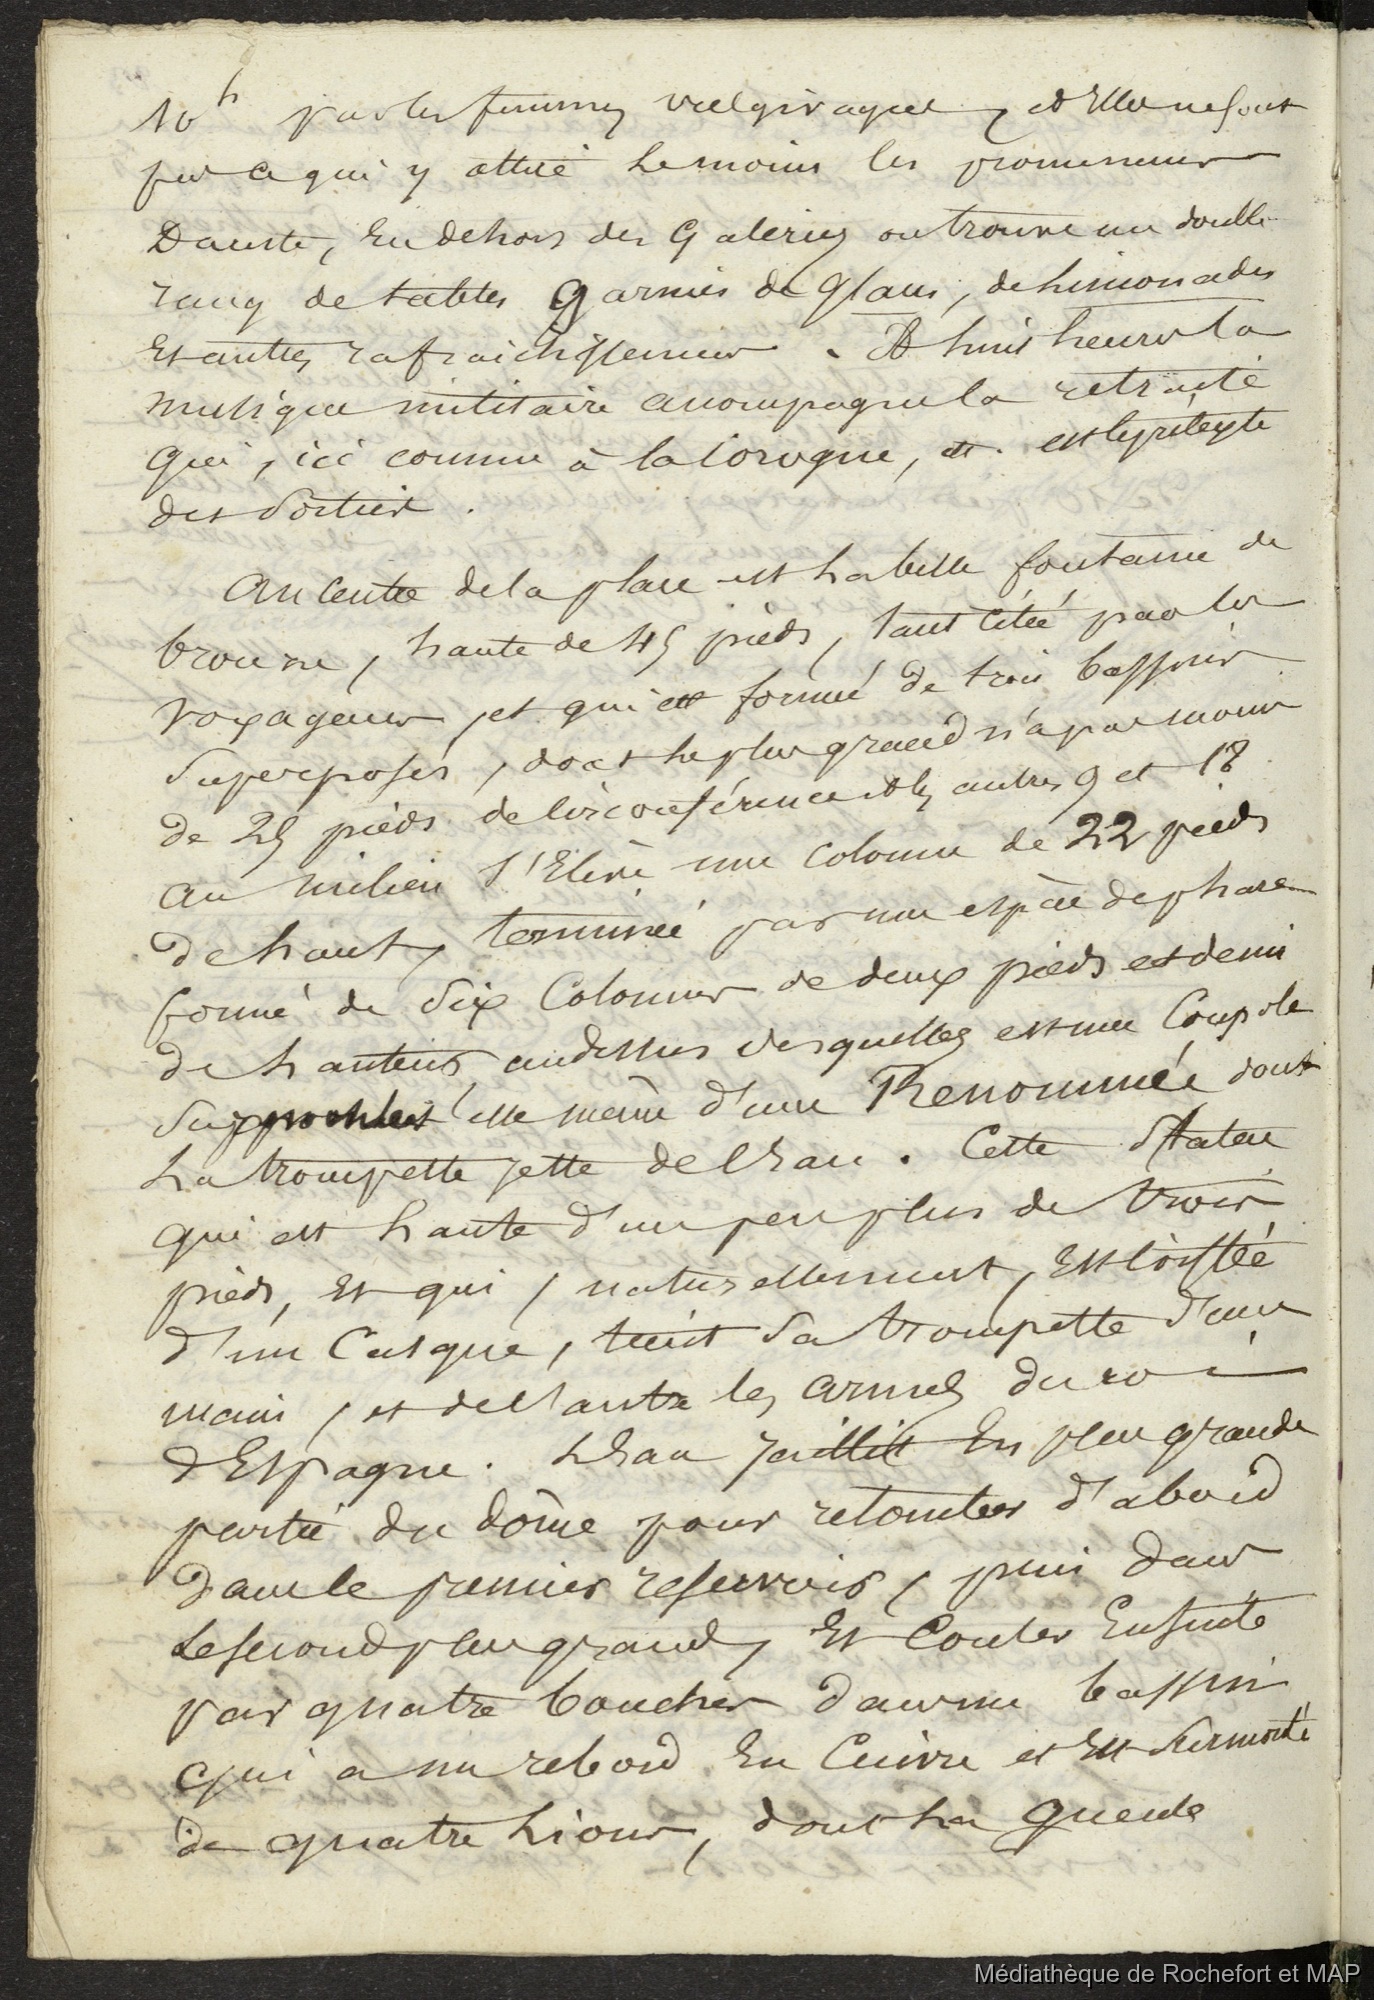 10h par les femmes vulgivagues, et Elles ne sont
pas ce qui y attire le moins les promeneurs
Du reste, En dehors des Galeries on trouve un double
rang de tables Garnies de Glaces, de limonades
Et autres rafraichissemens. A huit heures la
musique militaire accompagne la retraite
qui, ici comme à la Corogne, est le prétexte
des Sorties.
Au Centre de la place est la belle fontaine de
bronze, haute de 45 pieds, tant citée par les
voyageurs, et qui est formé de trois bassins
Superposés, dont le plus grand n'a pas moins
de 25 pieds de circonférence et les autres 9 et 18
au milieu s'Elève une colonne de 22 pieds
de haut, terminée par une espèce de phare
formé de Six Colonnes de deux pieds et demi
de hauteur, au dessus desquelles est une Coupole
elle même d'une Renommée dont
La trompette jette de l'Eau. Cette Statue
qui est haute d'un peu plus de trois
pieds, Et qui, naturellement, Est Coiffée
d'un Casque, tient Sa trompette d'une
main, et de l'autre les armes du roi
d'Espagne. L'Eau jaillit En plus grande
partie du dôme pour retomber d'abord
dans le premier reservoir, puis dans
Le second plus grand, Et Couler Ensuite
par quatre bouches dans un bassin
qui a un rebord En Cuivre et Est Surmonté
de quatre Lions, dont la Gueule
Médiathèque de Rochefort et MAP